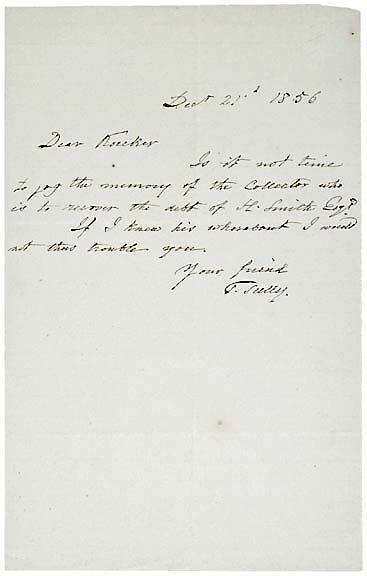 Dect 21d 1856
Dear Koecker
Is it not time
to jog the memory of the Collector who
is to recover the debt of H. Smith Esqr.
If I knew his whereabout I would
not thus trouble you.
Your friend
T. Sully.